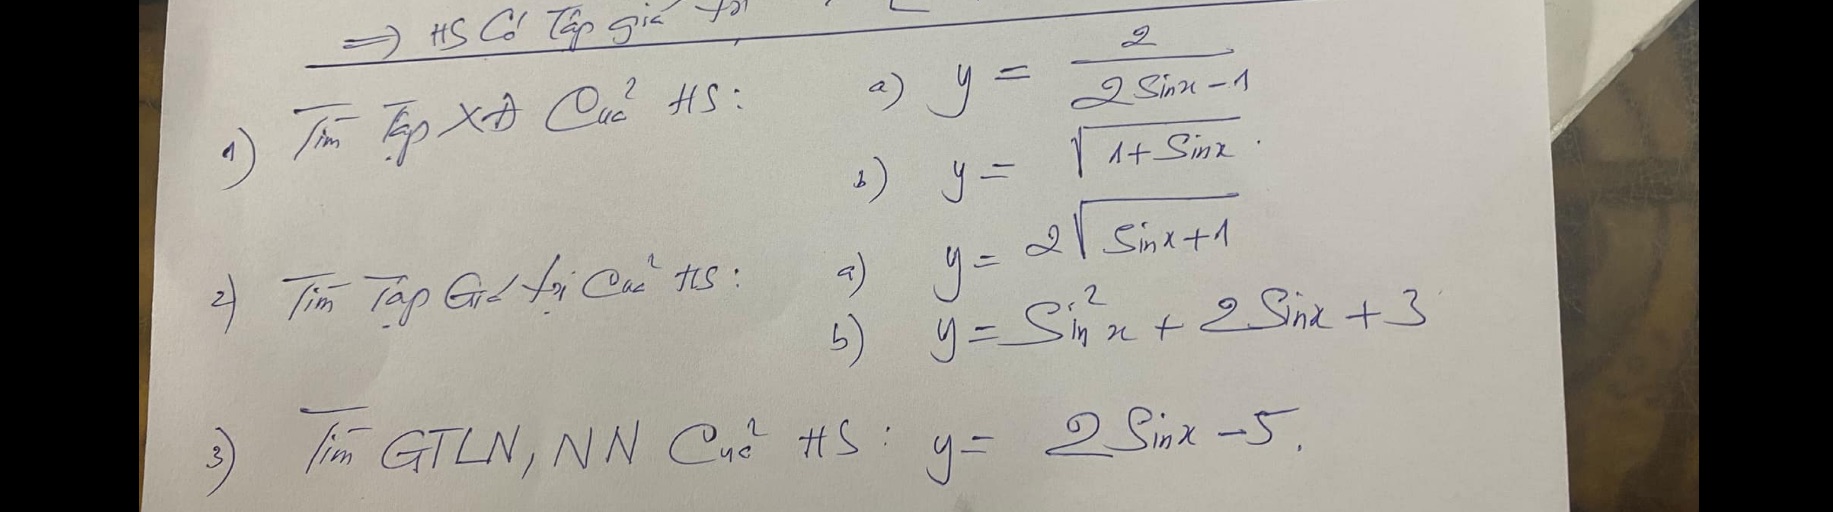 ⇒ HS Có Tập giá trị
1) Tìm Tập XĐ Của HS: a) y = 2/(2Sinx-1)
b) y = √(1+Sinx).
2) Tìm Tập Giá trị Của HS: a) y = 2√(Sinx+1)
b) y = Sin²x + 2Sinx + 3
3) Tìm GTLN, NN Của HS: y = 2Sinx - 5.